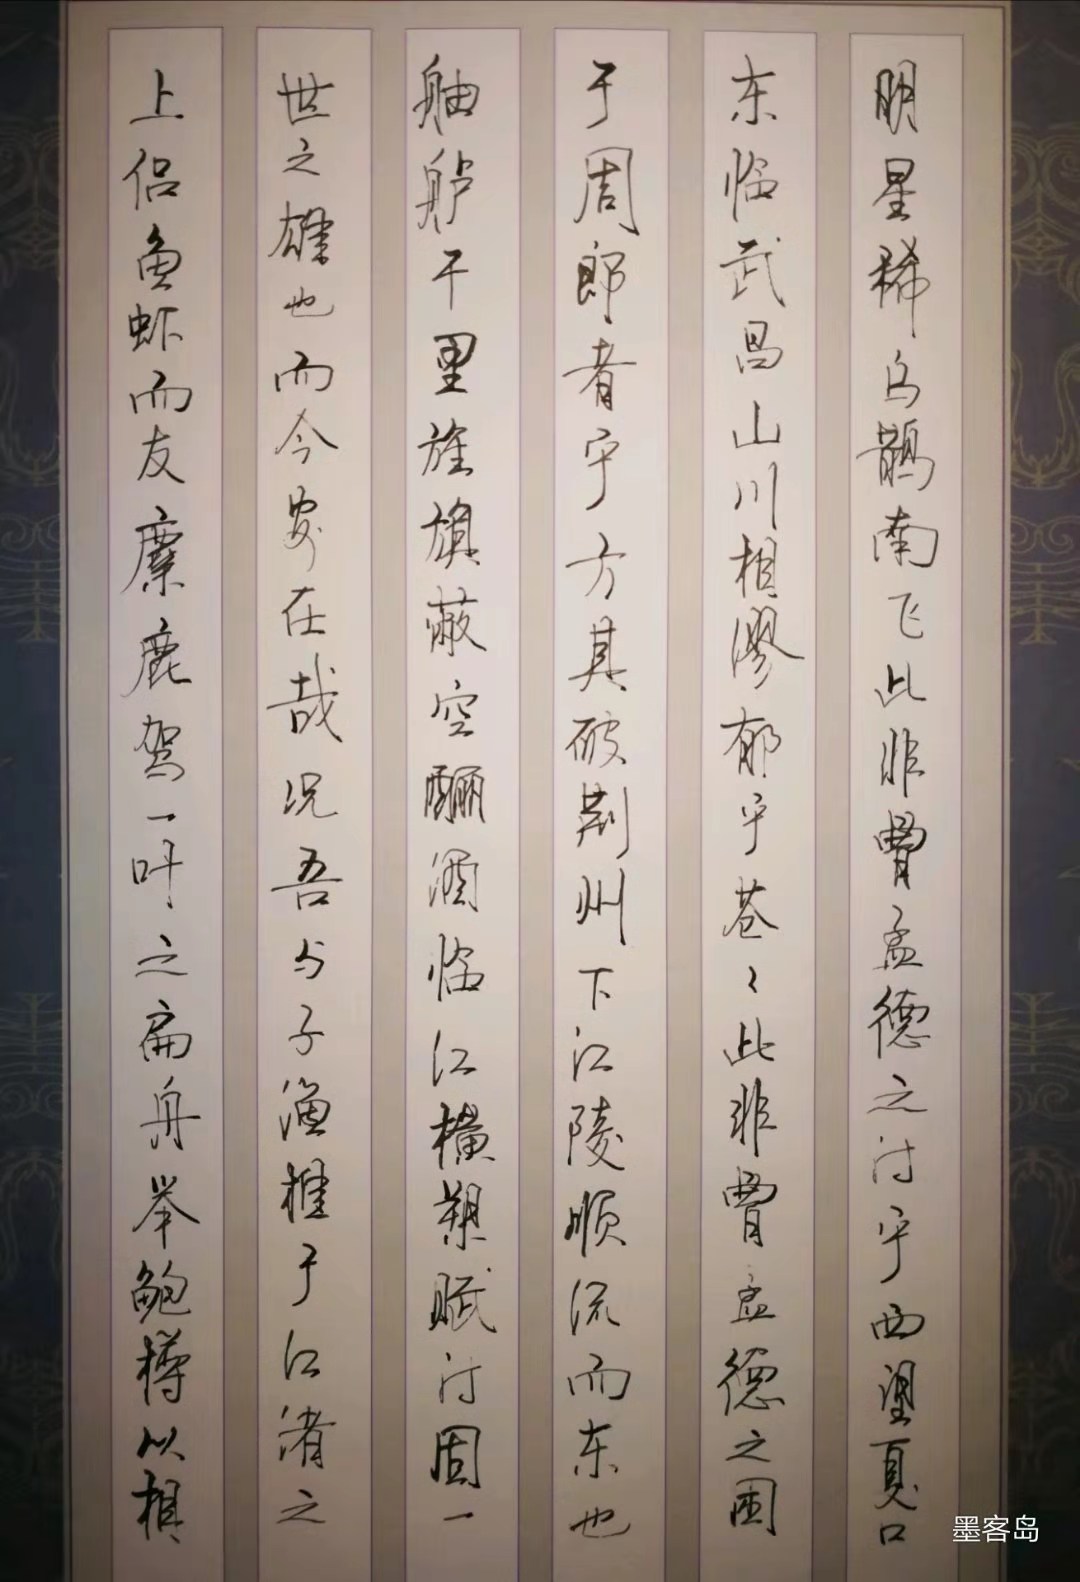 明星稀乌鹊南飞此非曹孟德之诗乎西望夏口
东临武昌山川相缪郁乎苍々此非曹孟德之困
于周郎者乎方其破荆州下江陵顺流而东也
舳舻千里旌旗蔽空酾酒临江横槊赋诗固一
世之雄也而今安在哉况吾与子渔樵于江渚之
上侣鱼虾而友麋鹿驾一叶之扁舟举匏樽以相
墨客岛